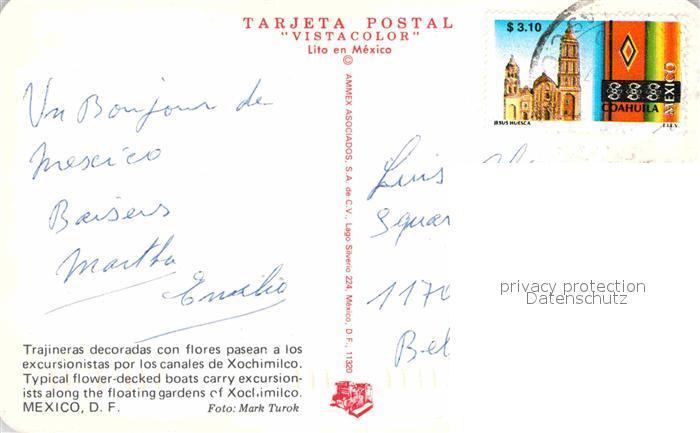 TARJETA POSTAL
"VISTACOLOR"
Lito en México
Un Bonjour de
Mexico
Baisers
Martha
Emilio
Trajineras decoradas con flores pasean a los
excursionistas por los canales de Xochimilco.
Typical flower-decked boats carry excursion-
ists along the floating gardens of Xochimilco.
MEXICO, D. F.
Foto: Mark Turok
© AMMEX ASOCIADOS, S.A. de C.V., Lago Silverio 224, México, D.F., 11320
$ 3.10
JESUS HUESCA
COAHUILA
MEXICO
T.I.E.V.
Luis
Squar
1170
Bel
privacy protection
Datenschutz